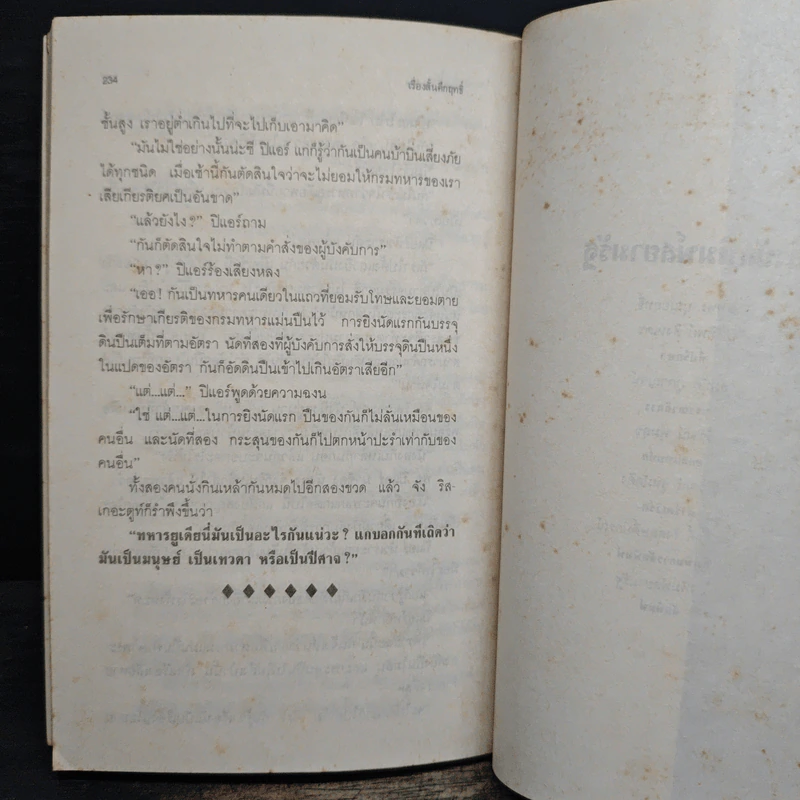 234
เรื่องสั้นคึกฤทธิ์
ชั้นสูง เราอยู่ต่ำเกินไปที่จะไปเก็บเอามาคิด”
“มันไม่ใช่อย่างนั้นน่ะซี ปิแอร์ แกก็รู้ว่ากันเป็นคนบ้าบิ่นเสี่ยงภัย
ได้ทุกชนิด เมื่อเช้านี้กันตัดสินใจว่าจะไม่ยอมให้กรมทหารของเรา
เสียเกียรติยศเป็นอันขาด”
“แล้วยังไง?” ปิแอร์ถาม
“กันก็ตัดสินใจไม่ทำตามคำสั่งของผู้บังคับการ”
“หา?” ปิแอร์ร้องเสียงหลง
“เออ! กันเป็นทหารคนเดียวในแถวที่ยอมรับโทษและยอมตาย
เพื่อรักษาเกียรติของกรมทหารแม่นปืนไว้ การยิงนัดแรกกันบรรจุ
ดินปืนเต็มที่ตามอัตรา นัดที่สองที่ผู้บังคับการสั่งให้บรรจุดินปืนหนึ่ง
ในแปดของอัตรา กันก็อัดดินปืนเข้าไปเกินอัตราเสียอีก”
“แต่...แต่...” ปิแอร์พูดด้วยความฉงน
“ใช่ แต่...แต่...ในการยิงนัดแรก ปืนของกันก็ไม่ลั่นเหมือนของ
คนอื่น และนัดที่สอง กระสุนของกันก็ไปตกหน้าปะรำเท่ากับของ
คนอื่น”
ทั้งสองคนนั่งกินเหล้ากันหมดไปอีกสองขวด แล้ว จัง ริส-
เกอะดูท์ก็รำพึงขึ้นว่า
“ทหารยูเดียนี่มันเป็นอะไรกันแน่วะ? แกบอกกันทีเถิดว่า
มันเป็นมนุษย์ เป็นเทวดา หรือเป็นปีศาจ?”